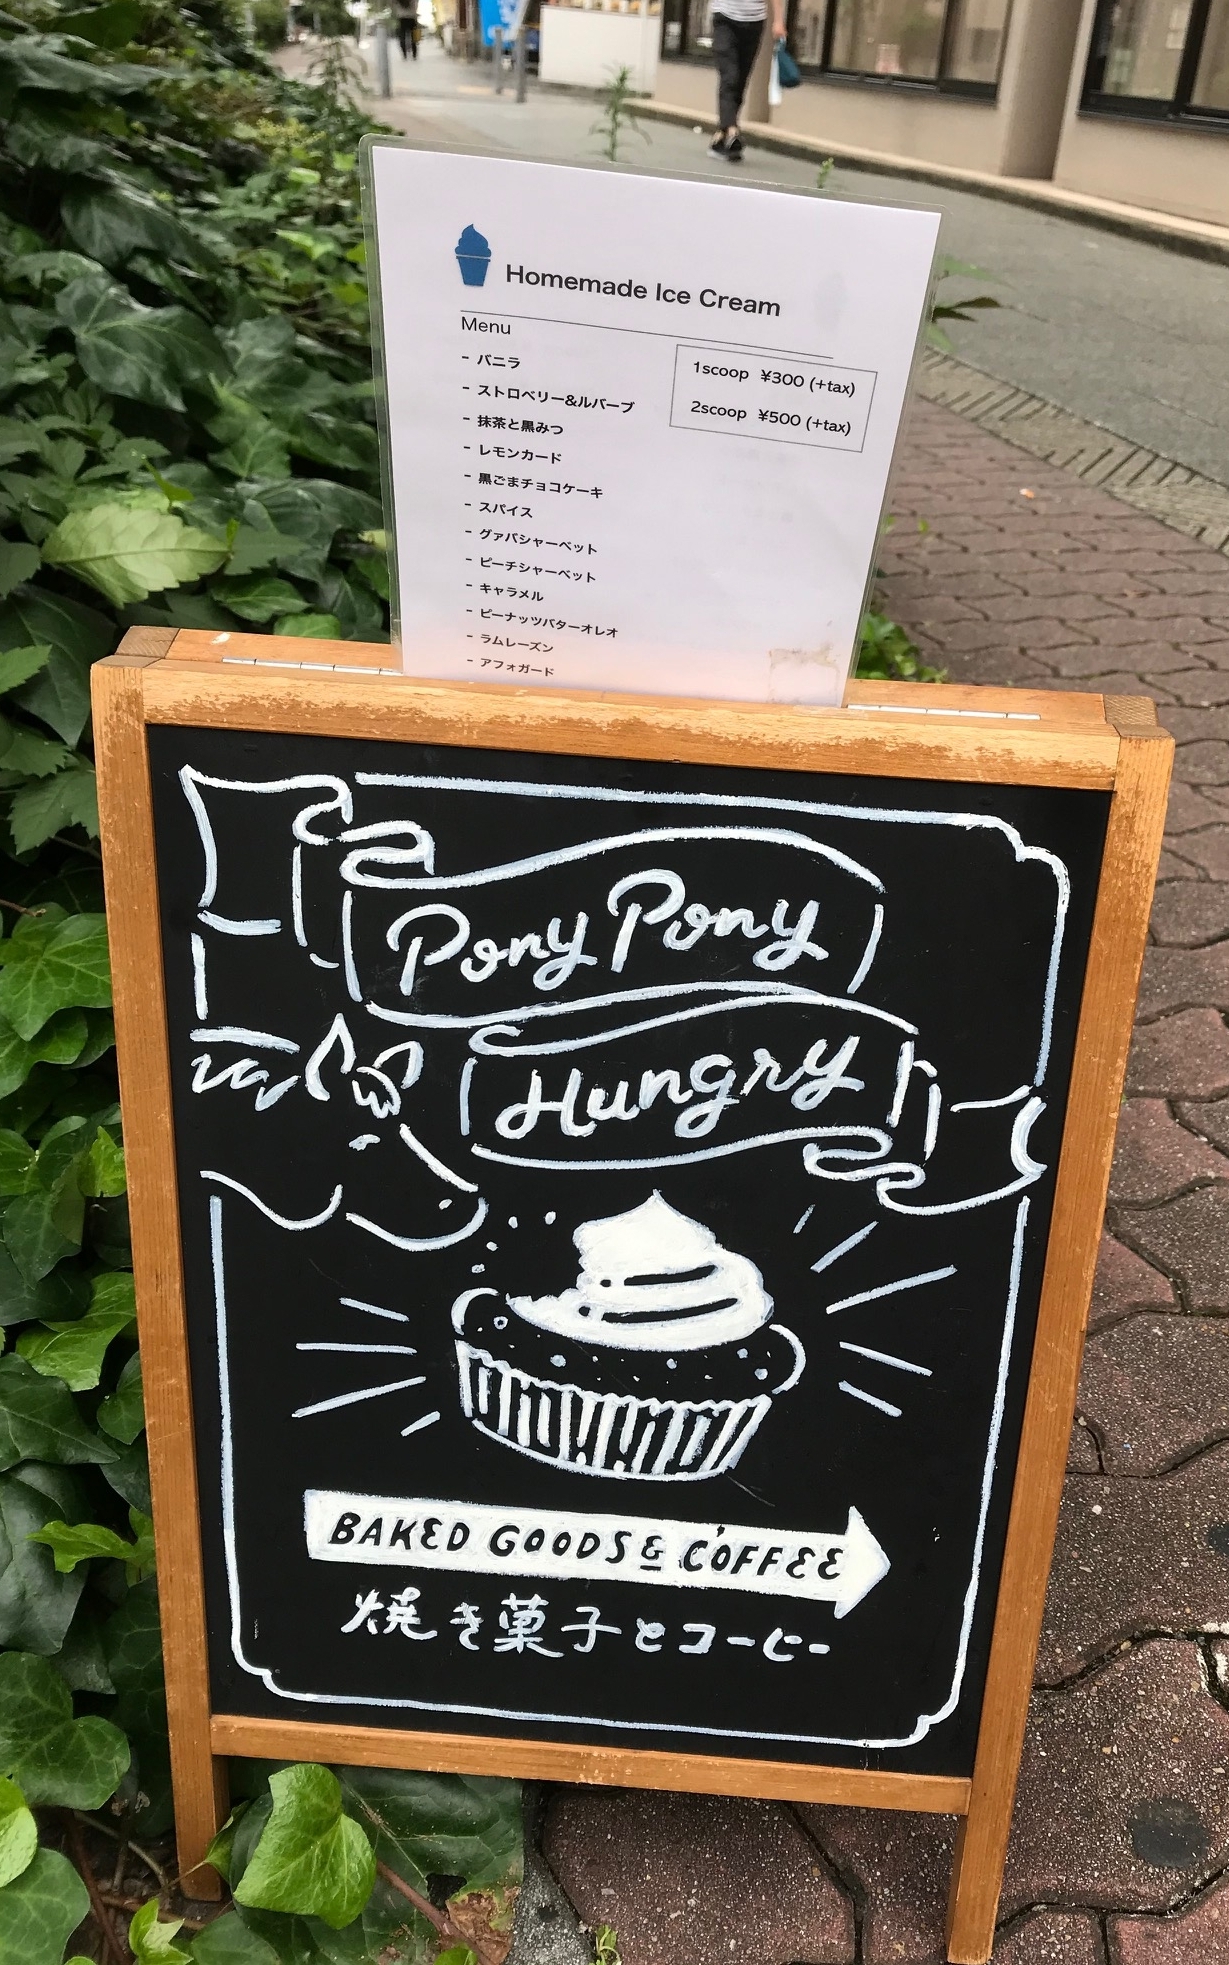 Homemade Ice Cream
Menu
- バニラ
- ストロベリー&ルバーブ
- 抹茶と黒みつ
- レモンカード
- 黒ごまチョコケーキ
- スパイス
- グァバシャーベット
- ピーチシャーベット
- キャラメル
- ピーナッツバターオレオ
- ラムレーズン
- アフォガード
1scoop ¥300 (+tax)
2scoop ¥500 (+tax)
Pony Pony
Hungry
BAKED GOODS & COFFEE
焼き菓子とコーヒー